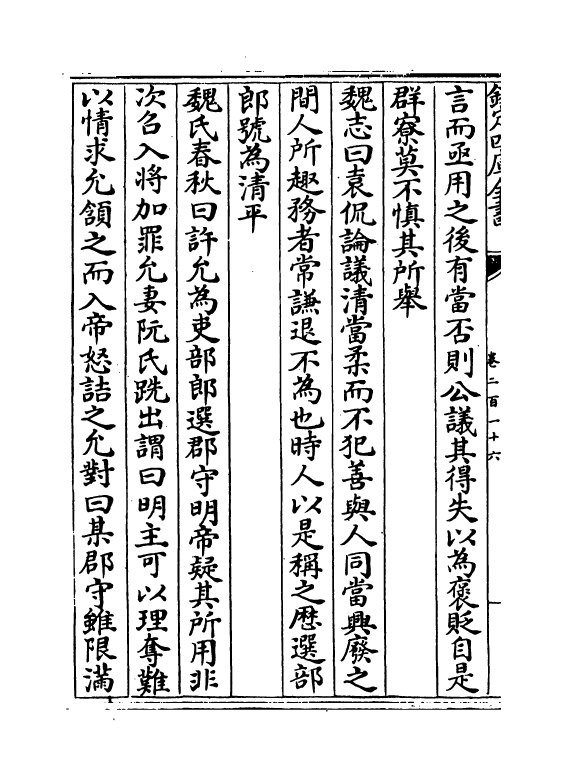 欽定四庫全書
卷二百一十六
言而亟用之後有當否則公議其得失以為襃貶自是
群寮莫不慎其所舉
魏志曰袁侃論議清當柔而不犯善與人同當興廢之
間人所趣務者常謙退不為也時人以是稱之歴選部
郎號為清平
魏氏春秋曰許允為吏部郎選郡守明帝疑其所用非
次召入將加罪允妻阮氏跣出謂曰明主可以理奪難
以情求允頷之而入帝怒詰之允對曰某郡守雖限滿